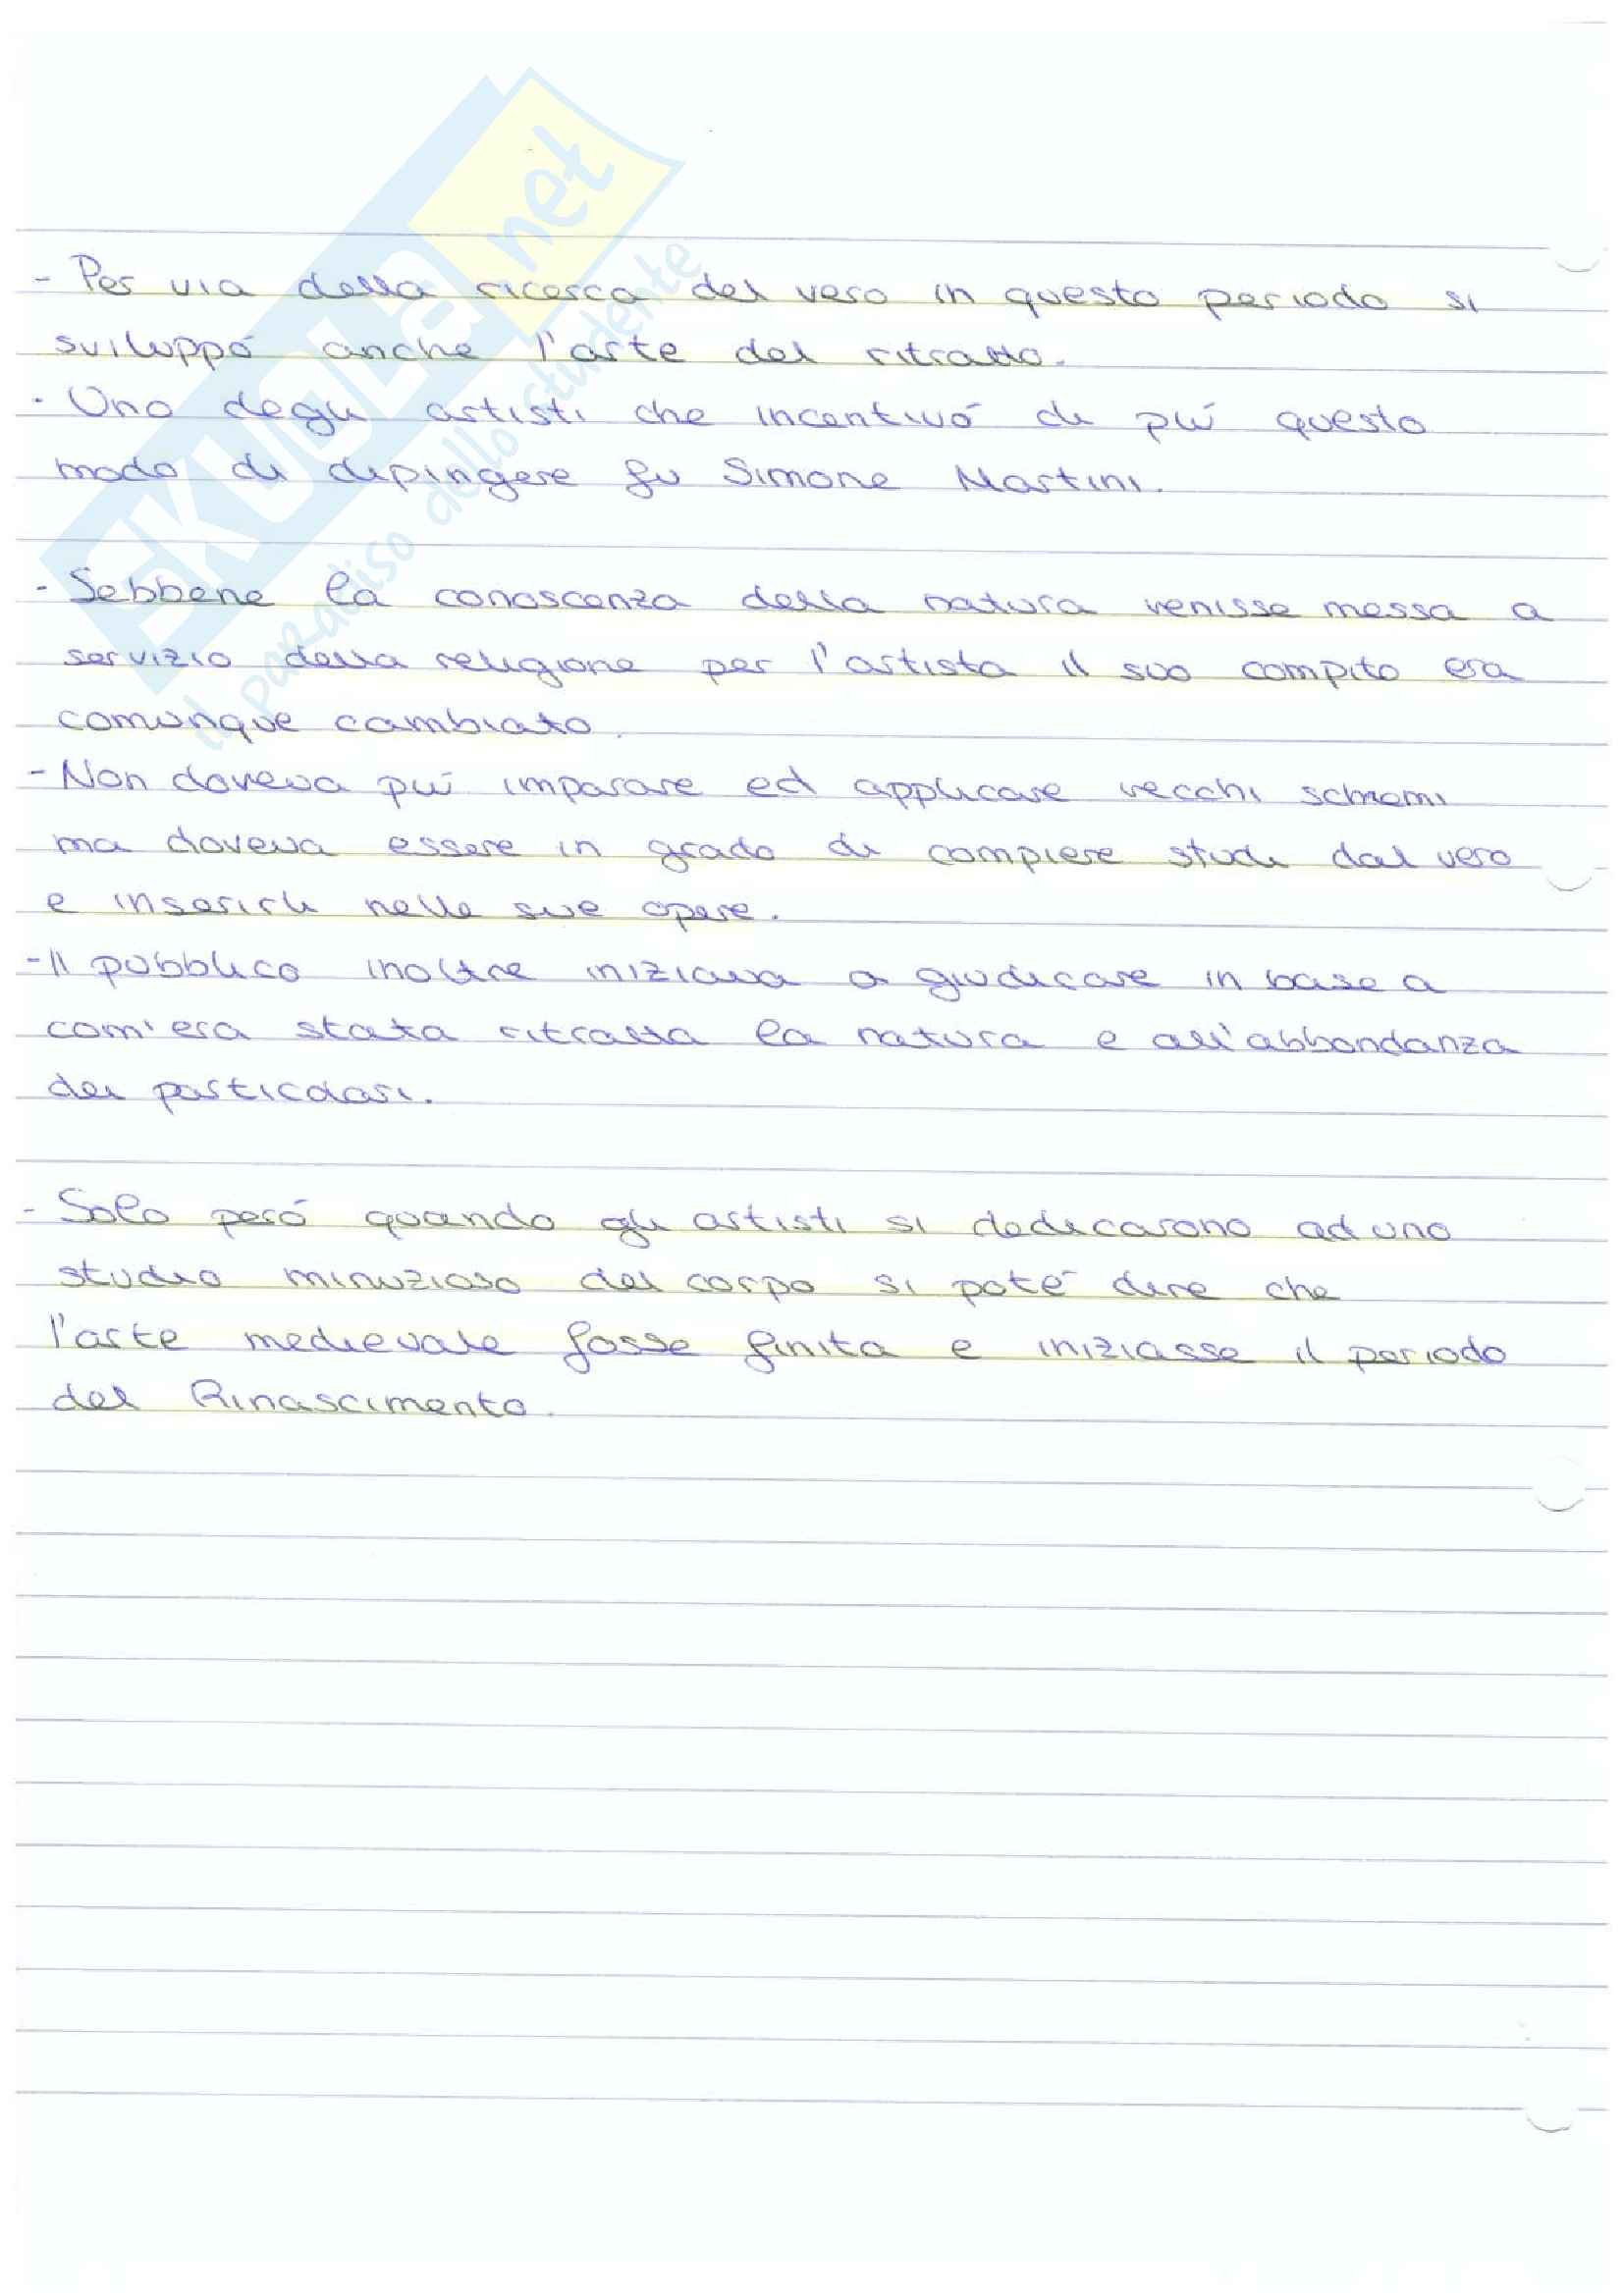 SKUOLA.net
il paradiso dello studente
- Per via della ricerca del vero in questo periodo si
sviluppó anche l'arte del ritratto.
- Uno degli artisti che incentivó di piú questo
modo di dipingere fu Simone Martini.
- Sebbene la conoscenza della natura venisse messa a
servizio della religione per l'artista il suo compito era
comunque cambiato.
- Non doveva piú imparare ed applicare vecchi schemi
ma doveva essere in grado di compiere studi dal vero
e inserirli nelle sue opere.
- Il pubblico inoltre iniziava a giudicare in base a
com'era stata ritratta la natura e all'abbondanza
dei particolari.
- Solo peró quando gli artisti si dedicarono ad uno
studio minuzioso del corpo si poté dire che
l'arte medievale fosse finita e iniziasse il periodo
del Rinascimento.